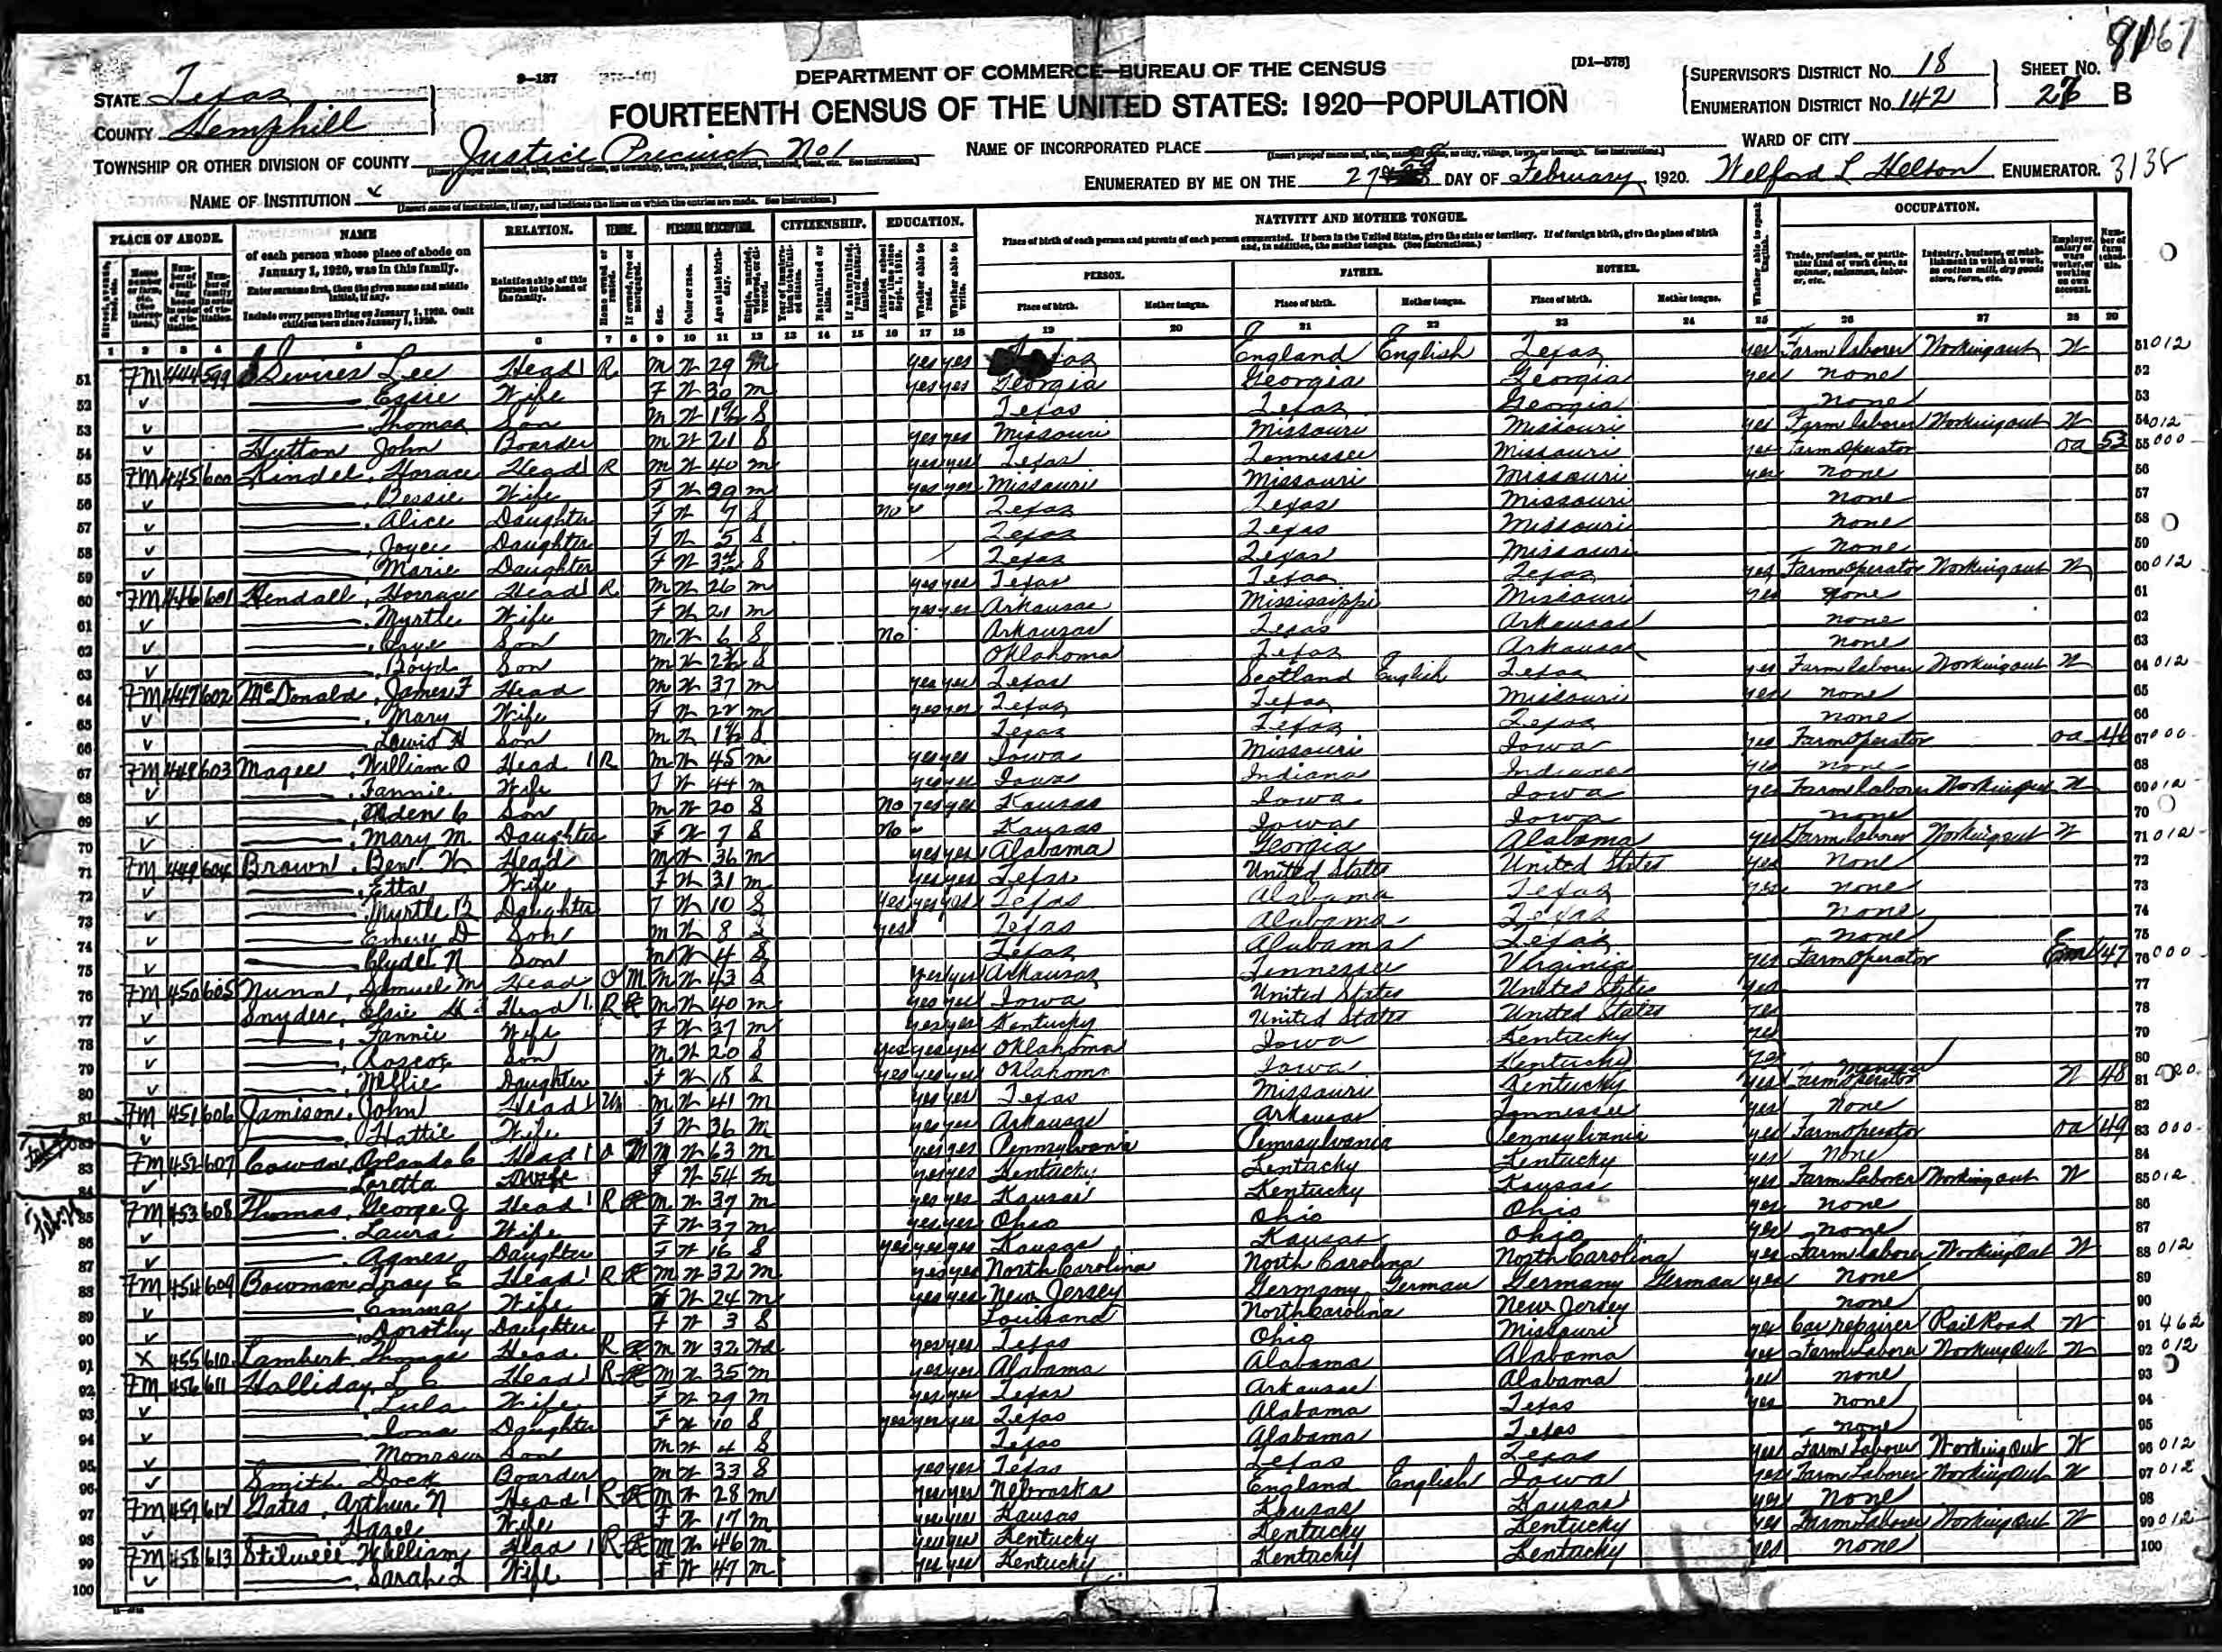 8167
STATE Texas
9-137
DEPARTMENT OF COMMERCE—BUREAU OF THE CENSUS
[D1-578]
SUPERVISOR'S DISTRICT No. 18
SHEET No.
COUNTY Hemphill
FOURTEENTH CENSUS OF THE UNITED STATES: 1920—POPULATION
ENUMERATION DISTRICT No. 142
B
TOWNSHIP OR OTHER DIVISION OF COUNTY Justice Precinct No 1
NAME OF INCORPORATED PLACE
WARD OF CITY
NAME OF INSTITUTION
ENUMERATED BY ME ON THE 27 DAY OF February, 1920. Welford L Helton ENUMERATOR. 3138
PLACE OF ABODE. NAME RELATION. TENURE. PERSONAL DESCRIPTION. CITIZENSHIP. EDUCATION. NATIVITY AND MOTHER TONGUE. OCCUPATION.
of each person whose place of abode on January 1, 1920, was in this family.
Enter surname first, then the given name and middle initial, if any.
Include every person living on January 1, 1920. Omit children born since January 1, 1920.
Relationship of this person to the head of the family.
PERSON. FATHER. MOTHER.
Place of birth. Mother tongue. Place of birth. Mother tongue. Place of birth. Mother tongue.
1 2 3 4 5 6 7 8 9 10 11 12 13 14 15 16 17 18 19 20 21 22 23 24 25 26 27 28 29
51 FM 444 599 Lee Head R M W 29 M yes yes Texas England English Texas yes Farm laborer Working out W 51 012
52 Wife F W 30 M yes yes Georgia Georgia Georgia yes none 52
53 Thomas Son M W S Texas Texas Georgia none 53
54 Hutton John Boarder M W 21 S yes yes Missouri Missouri Missouri yes Farm laborer Working out W 54 012
55 FM 445 600 Kindel, Horace Head R M W 40 M yes yes Texas Tennessee Missouri yes Farm Operator oa 53 55 000
56 Bessie Wife F W 29 M yes yes Missouri Missouri Missouri yes none 56
57 Alice Daughter F W 7 S no Texas Texas Missouri none 57
58 Joyce Daughter F W 5 S Texas Texas Missouri none 58
59 Marie Daughter F W S Texas Texas Missouri none 59
60 FM 446 601 Kendall, Horrace Head R M W 26 M yes yes Texas Texas Texas yes Farm Operator Working out W 60 012
61 Myrtle Wife F W 21 M yes yes Arkansas Mississippi Missouri yes none 61
62 Son M W 6 S no Arkansas Texas Arkansas none 62
63 Boyd Son M W S Oklahoma Texas Arkansas none 63
64 FM 447 602 McDonald, James F Head M W 37 M yes yes Texas Scotland English Texas yes Farm laborer Working out W 64 012
65 Mary Wife F W 22 M yes yes Texas Texas Missouri yes none 65
66 Lewis H Son M W S Texas Texas Texas none 66
67 FM 448 603 Magee, William O Head R M W 45 M yes yes Iowa Missouri Iowa yes Farm Operator oa 46 67 000
68 Fannie Wife F W 44 M yes yes Iowa Indiana Indiana yes none 68
69 Alden C Son M W 20 S no yes yes Kansas Iowa Iowa yes Farm laborer Working out W 69 012
70 Mary M. Daughter F W 7 S no Kansas Iowa Iowa none 70
71 FM 449 604 Brown, Ben W Head M W 36 M yes yes Alabama Georgia Alabama yes Farm laborer Working out W 71 012
72 Etta Wife F W 31 M yes yes Texas United States United States yes none 72
73 Myrtle B Daughter F W 10 S yes yes yes Texas Alabama Texas yes none 73
74 Emery D Son M W 8 S yes Texas Alabama Texas none 74
75 Clyde N Son M W 4 S Texas Alabama Texas none 75
76 FM 450 605 Nunn, Samuel M Head O M M W 43 S yes yes Arkansas Tennessee Virginia yes Farm Operator Em 47 76 000
77 Snyder, Head R M W 40 M yes yes Iowa United States United States yes 77
78 Fannie Wife F W 37 M yes yes Kentucky United States United States yes 78
79 Roscoe Son M W 20 S yes yes yes Oklahoma Iowa Kentucky yes 79
80 Nellie Daughter F W 18 S yes yes yes Oklahoma Iowa Kentucky yes 80
81 FM 451 606 Jamison, John Head M W 41 M yes yes Texas Missouri Kentucky yes Farm Operator W 48 81
82 Hattie Wife F W 36 M yes yes Arkansas Arkansas Tennessee yes none 82
83 FM 452 607 Cowan, Orlando C Head O M M W 63 M yes yes Pennsylvania Pennsylvania Pennsylvania yes Farm Operator oa 49 83 000
84 Loretta Wife F W 54 M yes yes Kentucky Kentucky Kentucky yes none 84
85 FM 453 608 Thomas, George J Head R M W 37 M yes yes Kansas Kentucky Kansas yes Farm Laborer Working out W 85 012
86 Laura Wife F W 37 M yes yes Ohio Ohio Ohio yes none 86
87 Agnes Daughter F W 16 S yes yes yes Kansas Kansas Ohio yes none 87
88 FM 454 609 Bowman, Head R M W 32 M yes yes North Carolina North Carolina North Carolina yes Farm laborer Working Out W 88 012
89 Emma Wife F W 24 M yes yes New Jersey Germany German Germany German yes none 89
90 Dorothy Daughter F W 3 S Louisiana North Carolina New Jersey none 90
91 X 455 610 Lambert, Thomas Head R M W 32 Wd yes yes Texas Ohio Missouri yes Car repairer Rail Road W 91 462
92 FM 456 611 Halliday, L C Head R M W 35 M yes yes Alabama Alabama Alabama yes Farm Laborer Working Out W 92 012
93 Lula Wife F W 29 M yes yes Texas Arkansas Alabama yes none 93
94 Iona Daughter F W 10 S yes yes yes Texas Alabama Texas yes none 94
95 Monroe Son M W 4 S Texas Alabama Texas none 95
96 Smith Dock Boarder M W 33 S yes yes Texas Texas Texas yes Farm Laborer Working Out W 96 012
97 FM Gates, Arthur N Head R M W 28 M yes yes Nebraska England English Iowa yes Farm Laborer Working Out W 97 012
98 Hazel Wife F W 17 M yes yes Kansas Kansas Kansas yes none 98
99 FM 458 613 Stilwell William Head R M W 46 M yes yes Kentucky Kentucky Kentucky yes Farm Laborer Working Out W 99 012
100 Sarah L Wife F W 47 M yes yes Kentucky Kentucky Kentucky yes none 100